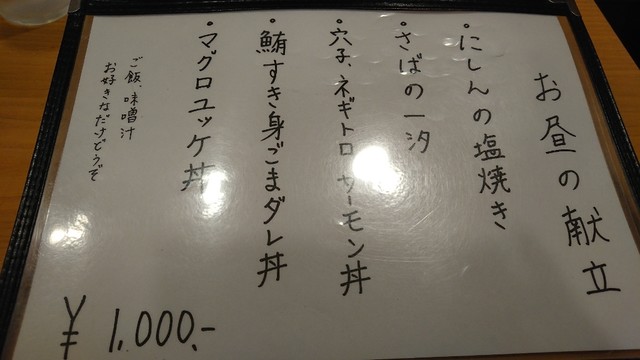 お昼の献立
・にしんの塩焼き
・さばの一汐
・穴子、ネギトロ サーモン丼
・鮪すき身ごまダレ丼
・マグロユッケ丼
ご飯、味噌汁
お好きなだけどうぞ
¥1,000.-